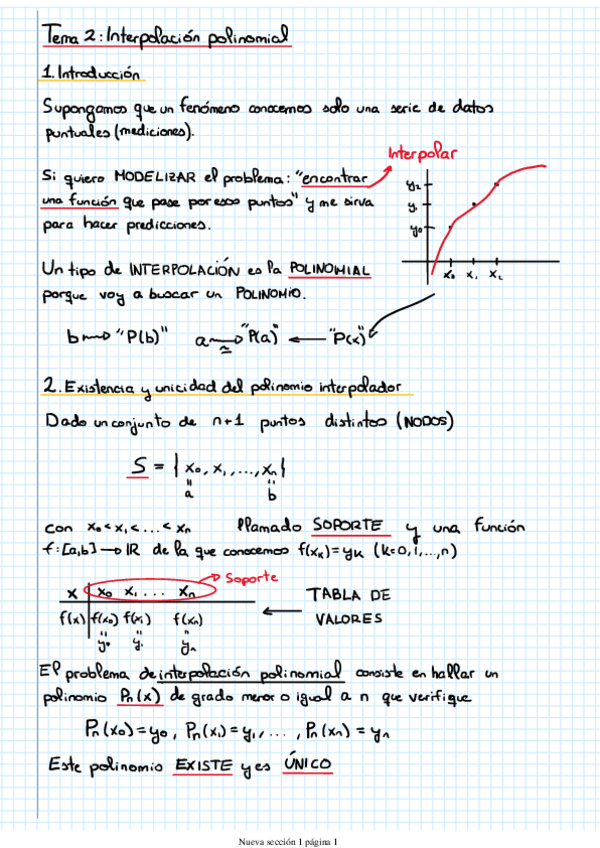 Tema 2: Interpolación polinomial
1. Introducción
Supongamos que un fenómeno conocemos solo una serie de datos
puntuales (mediciones).
Interpolar
Si quiero MODELIZAR el problema: "encontrar
una función que pase por esos puntos" y me sirva
para hacer predicciones.
y₂
y₁
y₀
x₀ x₁ x₂
Un tipo de INTERPOLACIÓN es la POLINOMIAL
porque voy a buscar un POLINOMIO.
b ⟿ "P(b)" a ⟿ "P(a)" ← "P(x)"
≈
2. Existencia y unicidad del polinomio interpolador
Dado un conjunto de n+1 puntos distintos (NODOS)
S = { x₀, x₁, ..., xₙ }
" "
a b
con x₀ < x₁ < ... < xₙ llamado SOPORTE y una función
f: [a,b] → IR de la que conocemos f(xₖ) = yₖ (k=0,1,...,n)
Soporte
x x₀ x₁ ... xₙ
TABLA DE
f(x) f(x₀) f(x₁) f(xₙ)
VALORES
" " "
y₀ y₁ yₙ
El problema de interpolación polinomial consiste en hallar un
polinomio Pₙ(x) de grado menor o igual a n que verifique
Pₙ(x₀) = y₀, Pₙ(x₁) = y₁, ..., Pₙ(xₙ) = yₙ
Este polinomio EXISTE y es ÚNICO
Nueva sección 1 página 1